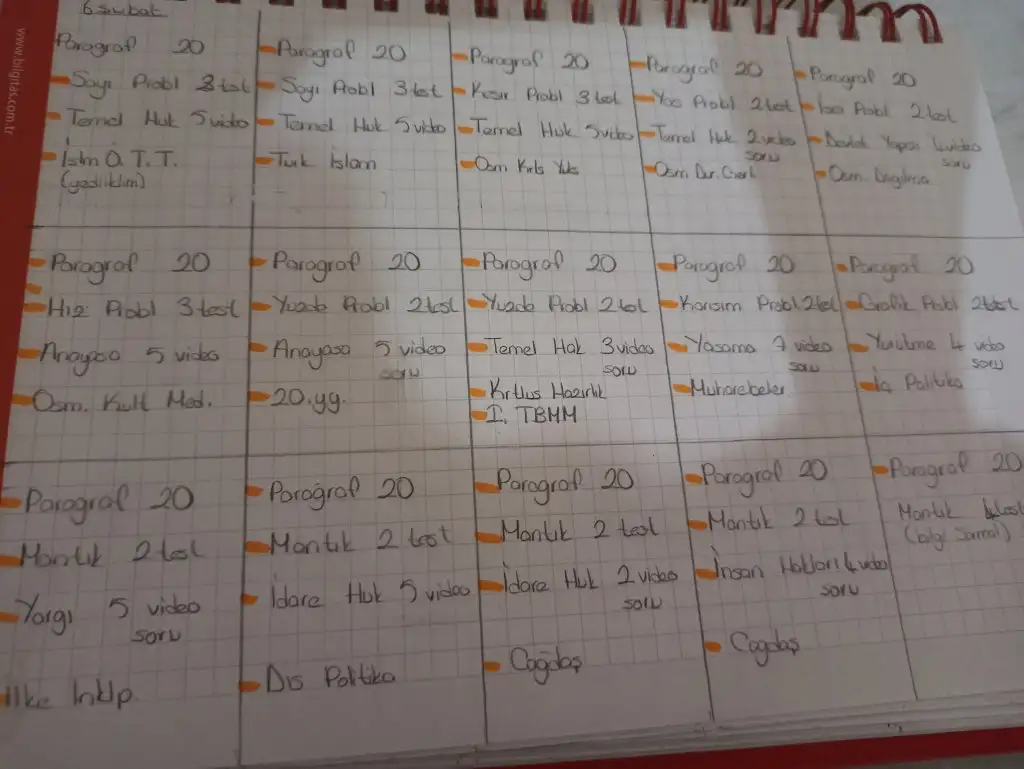 6 Subat
www.bilgitas.com.tr
Paragraf 20
Sayı Probl 3 test
Temel Huk 5 video
İslm Ö. T. T.
(yediiklim)
Paragraf 20
Sayı Probl 3 test
Temel Huk 5 video
Türk İslam
Paragraf 20
Kesir Probl 3 test
Temel Huk 5 video
Osm Krls Yuks
Paragraf 20
Yas Probl 2 test
Temel Huk 2 video
soru
Osm. Dur.
Paragraf 20
Probl 2 test
Devlet Yapısı 4 video
soru
Osm. Dagılma
Paragraf 20
Hız Probl 3 test
Anayasa 5 video
Osm. Kult Med.
Paragraf 20
Yuzde Probl 2 test
Anayasa 5 video
soru
20.yy.
Paragraf 20
Yuzde Probl 2 test
Temel Hak 3 video
soru
Krtlus Hazırlık
I. TBMM
Paragraf 20
Karısım Probl 2 test
Yasama 7 video
soru
Muharebeler
Paragraf 20
Grafik Probl 2 test
Yurutme 4 video
soru
İç Politika
Paragraf 20
Mantık 2 test
Yargı 5 video
soru
Ilke Inklp.
Paragraf 20
Mantık 2 test
İdare Huk 5 video
Dıs Politika
Paragraf 20
Mantık 2 test
İdare Huk 2 video
soru
Çağdaş
Paragraf 20
Mantık 2 test
İnsan Hakları 4 video
soru
Çagdaş
Paragraf 20
Mantık 4 test
(bilgi Sarmal)